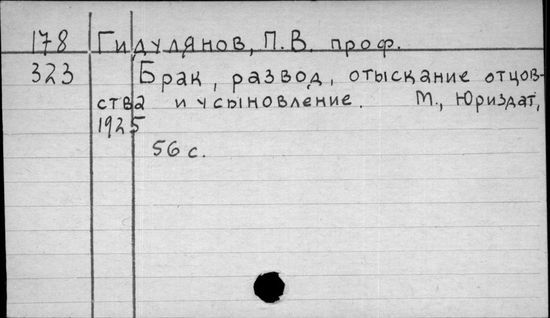 178 Гидулянов, П.В. проф.
323 Брак, развод, отыскание отцов-
ства и усыновление. М., Юриздат,
1925
56 с.